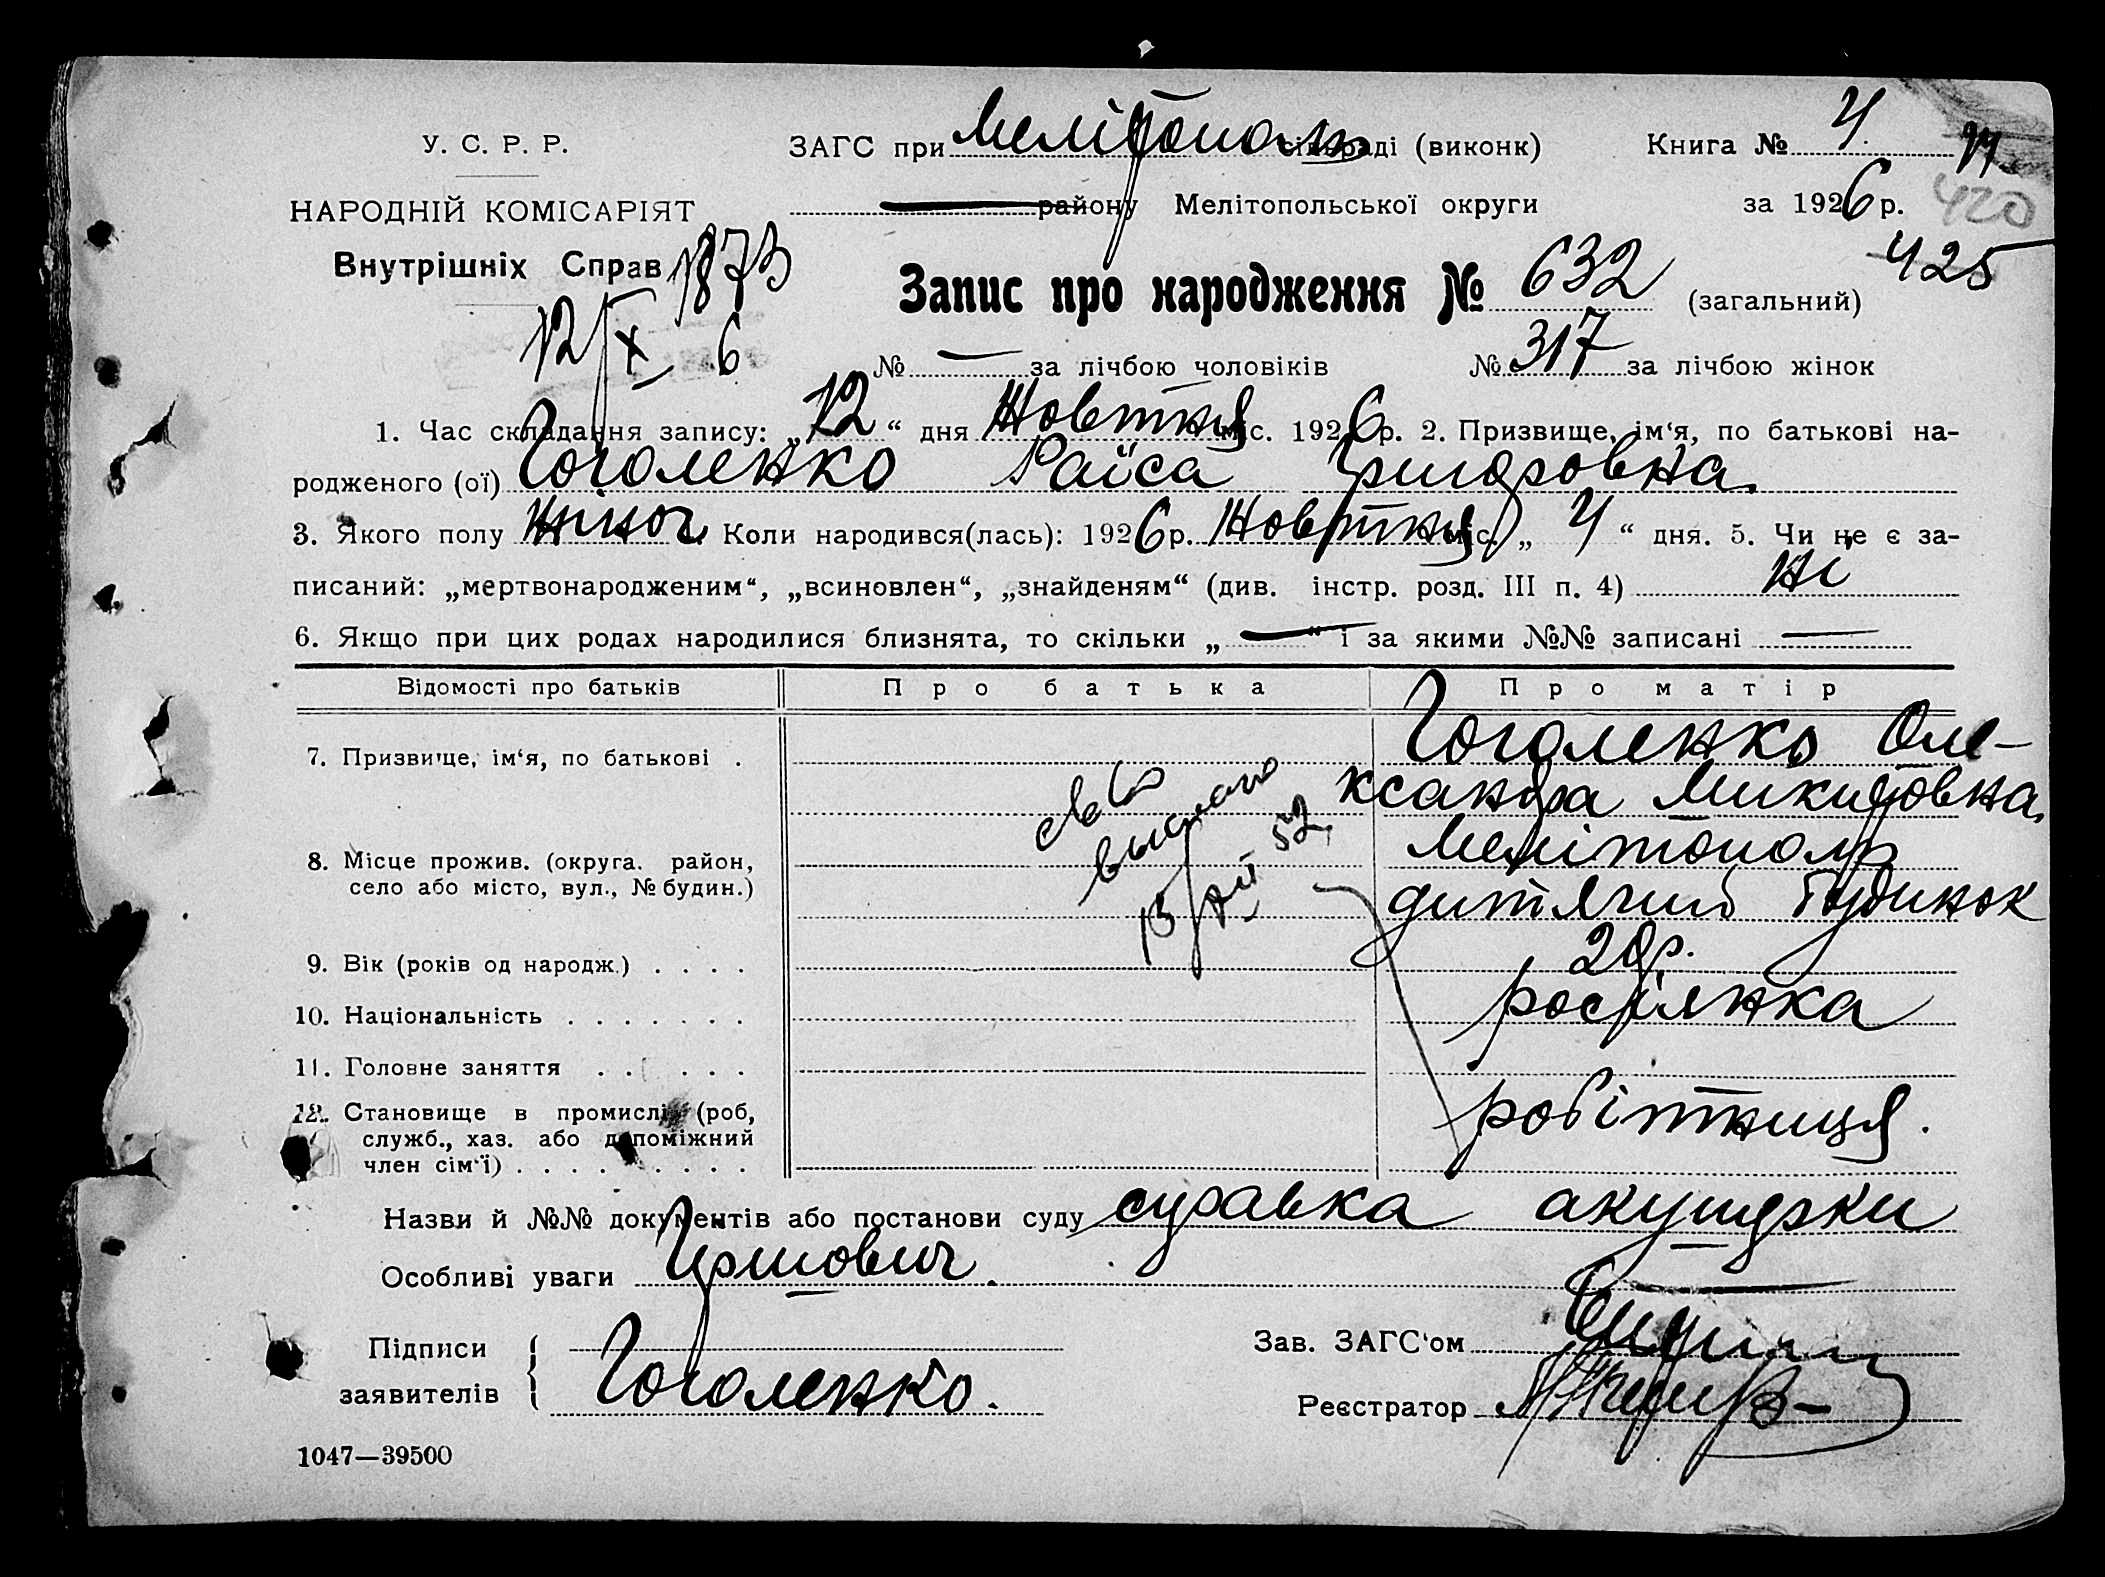 У. С. Р. Р.
НАРОДНІЙ КОМІСАРІЯТ
Внутрішніх Справ
1873
12/X 6
ЗАГС при Мелітополь сільраді (виконк)
району Мелітопольської округи
Книга № 4
за 1926 р.
420
425
Запис про народження № 632 (загальний)
№ — за лічбою чоловіків № 317 за лічбою жінок
1. Час складання запису: „12“ дня Жовтня міс. 1926 р. 2. Призвище, ім‘я, по батькові на-
родженого (ої) Гоголенко Раїса Григоровна
3. Якого полу жіноч. Коли народився(лась): 1926 р. Жовтня міс. „4“ дня. 5. Чи не є за-
писаний: „мертвонародженим“, „всиновлен“, „знайденям“ (див. інстр. розд. III п. 4) ні
6. Якщо при цих родах народилися близнята, то скільки „—“ і за якими №№ записані —
Відомості про батьків Про батька Про матір
7. Призвище, ім‘я, по батькові . Гоголенко Оле-
ксандра Микитовна
8. Місце прожив. (округа. район, Мелітополь
село або місто, вул., № будин.) дитячий будинок
9. Вік (років од народж.) . . . . 20 р.
10. Національність . . . . . . . росіянка
11. Головне заняття . . . . . .
12. Становище в промислі (роб, робітниця.
служб., хаз. або допоміжний
член сім‘ї) . . . . . . . . .
св-во
выслано
15/XII 52
Назви й №№ документів або постанови суду справка акушерки
Особливі уваги Гршович.
Підписи
заявителів Гоголенко.
Зав. ЗАГС‘ом
Реєстратор
1047—39500